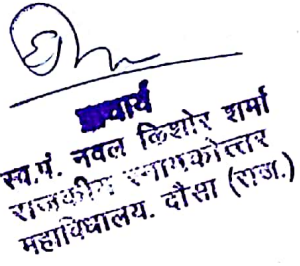 प्राचार्य
स्व.पं. नवल किशोर शर्मा
राजकीय स्नातकोत्तर
महाविधालय. दौसा (राज.)